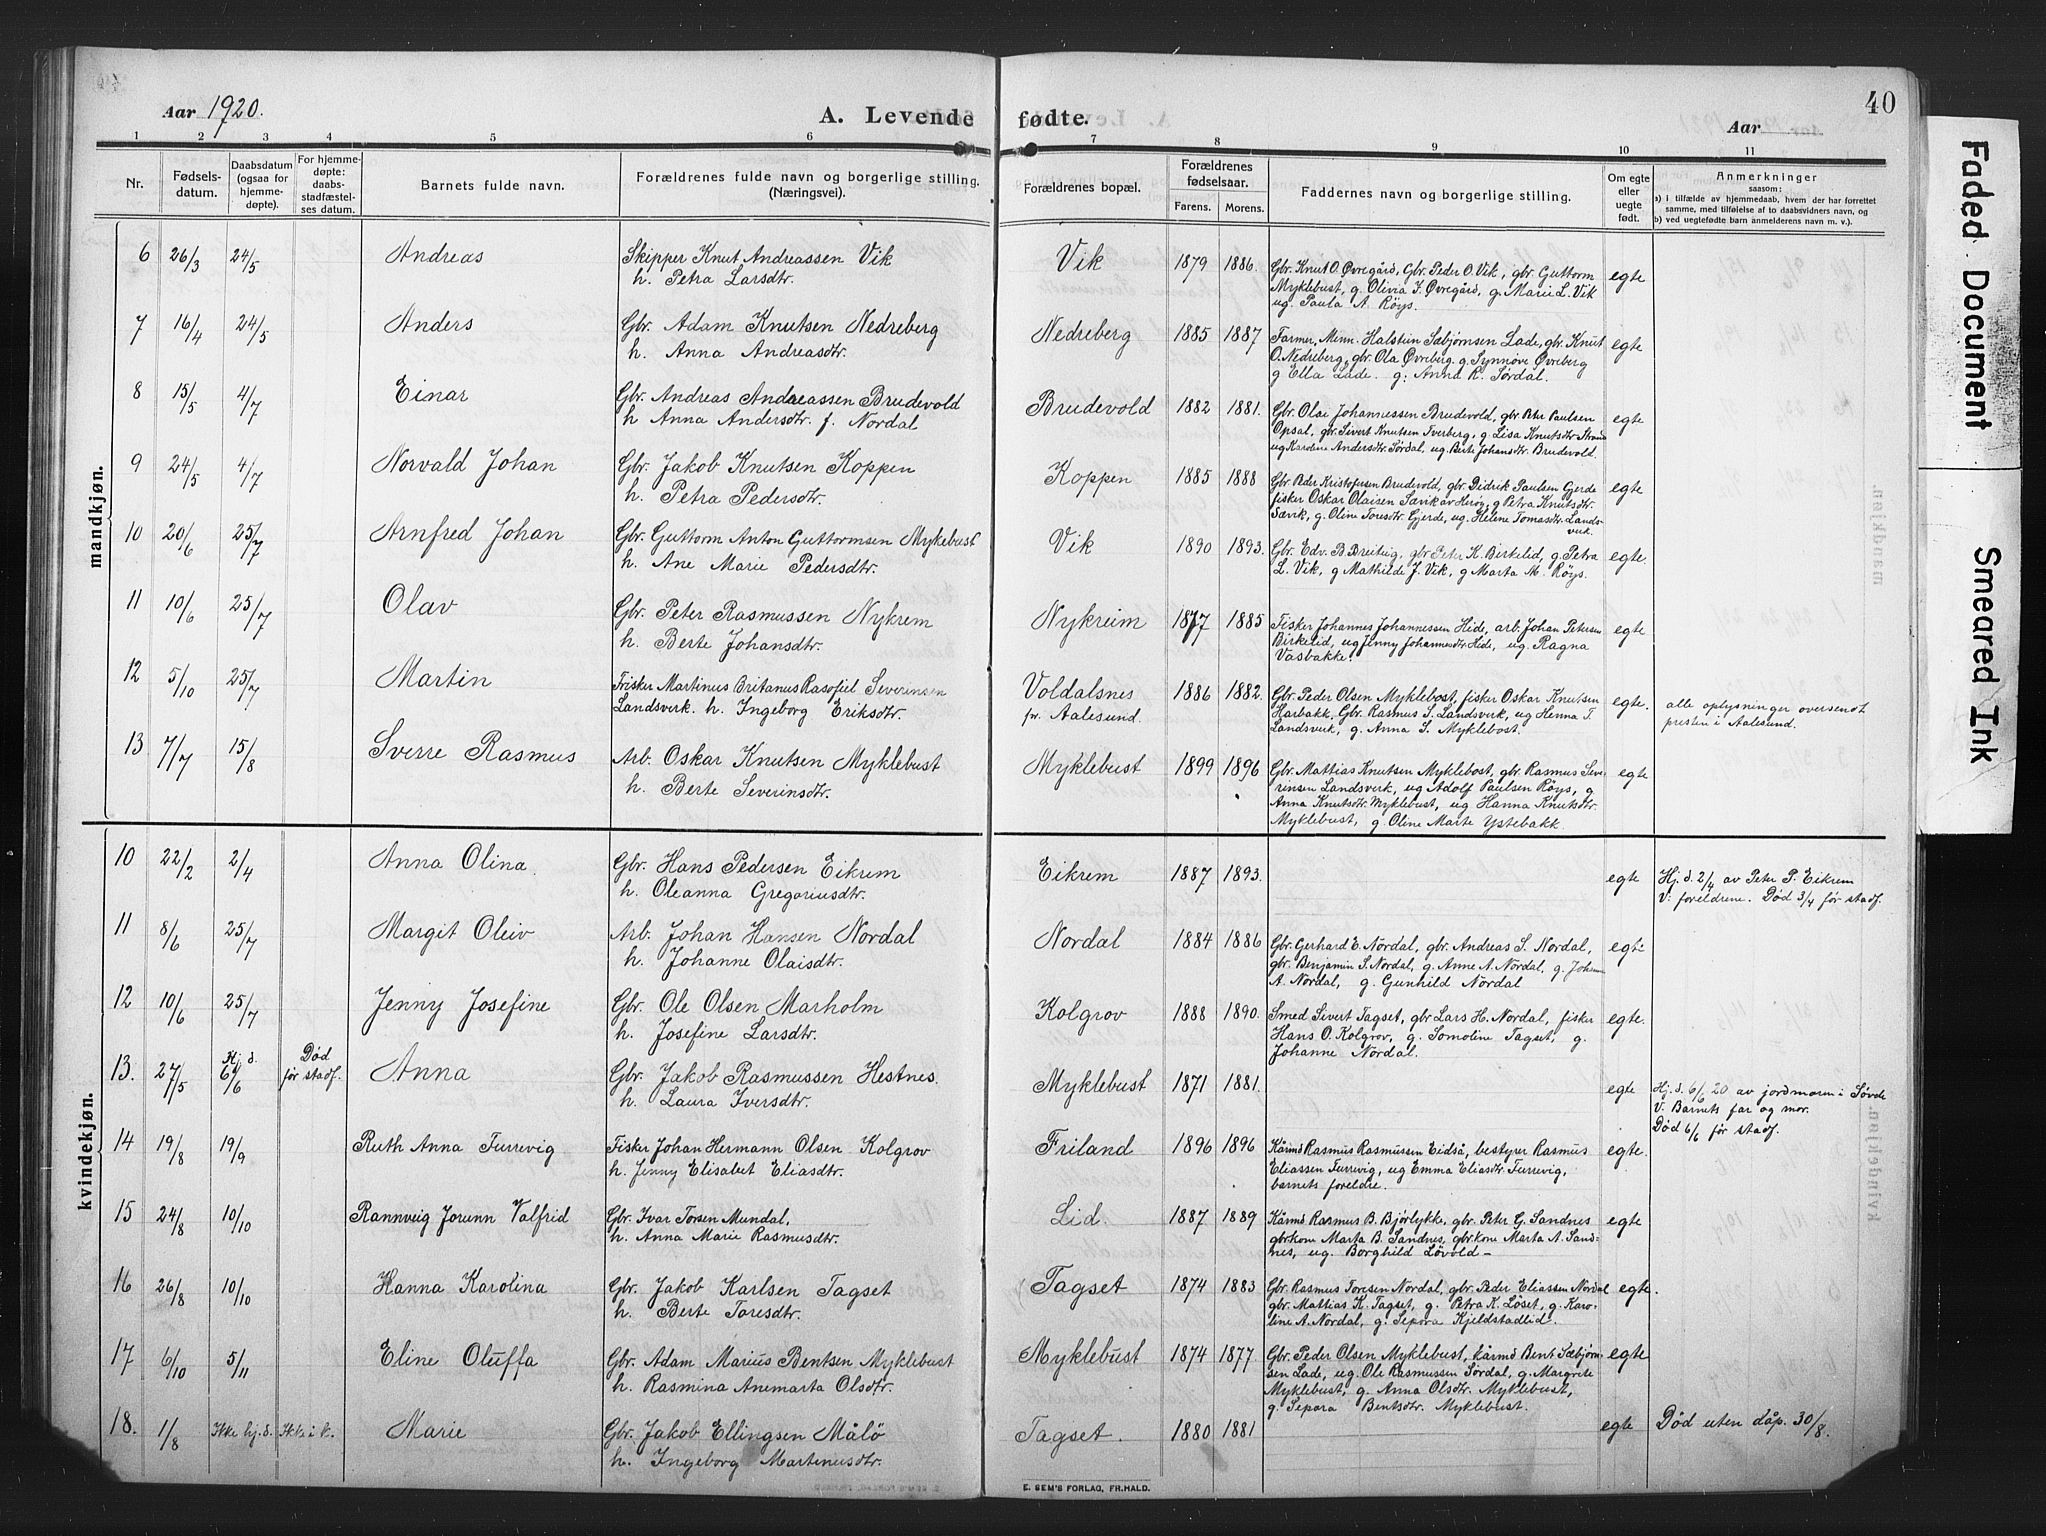 Aar 1920.
A. Levende fødte.
40
Aar
1 2 3 4 5 6 7 8 9 10 11
Nr.
Fødsels-
datum.
Daabsdatum
(ogsaa for
hjemme-
døpte).
For hjemme-
døpte:
daabs-
stadfæstel-
ses datum.
Barnets fulde navn.
Forældrenes fulde navn og borgerlige stilling.
(Næringsvei).
Forældrenes bopæl.
Forældrenes
fødselsaar.
Farens. Morens.
Faddernes navn og borgerlige stilling.
Om egte
eller
uegte
født.
Anmerkninger
saasom:
a) i tilfælde av hjemmedaab, hvem der har forrettet
samme, med tilføielse af to daabsvidners navn, og
b) ved uegtefødte barn anmelderens navn m. v.).
mandkjøn.
6 26/3 24/5 Andreas Skipper Knut Andreassen Vik
h. Petra Larsdtr.
Vik 1879 1886. Gbr. Knut O. Øvregård, Gbr. Peder O. Vik, gbr. Guttorm
Myklebust, g. Olivia I. Øvregård, g. Marie L. Vik
ug. Paula A. Röys.
egte
7 16/4 24/5 Anders Gbr. Adam Knutsen Nedreberg
h. Anna Andreasdtr.
Nedreberg 1885 1887 Farmer, Minn. Halstein Sæbjørnsen Lade, gbr. Knut
O. Nedreberg, gbr. Ola Øvreberg. g. Synnøve Øvreberg
g Ella Lade. g. Anna R. Sørdal.
egte
8 15/5 4/7 Einar Gbr. Andreas Andreassen Brudevold
h Anna Andersdtr. f. Nordal
Brudevold 1882 1881. Gbr. Olai Johannessen Brudevold, gbr. Peter Paulsen
Opsal, gbr. Sivert Knutsen Tverberg, g. Lisa Knutsdtr Strand
ug Karoline Andersdtr. Sørdal, ug. Berte Johansdtr. Brudevold.
egte
9 24/5 4/7 Norvald Johan Gbr. Jakob Knutsen Koppen
h. Petra Pedersdtr.
Koppen 1885 1888 Gbr. Peder Kristofersen Brudevold, gbr. Didrik Paulsen Gjerde
fisker Oskar Olaisen Sævik av Herøy, g. Petra Knutsdtr.
Sævik, g. Oline Toresdtr. Gjerde, ug. Helene Tomasdtr. Lands-
verk.
egte
10 20/6 25/7 Arnfred Johan Gbr. Guttorm Anton Guttormsen Myklebust
h. Ane Marie Pedersdtr.
Vik 1890 1893. Gbr. Edv. B. Breiteig, gbr Peter K. Birkelid, g. Petra
L. Vik, g Mathilde J. Vik, g Marta M. Röys.
egte.
11 10/6 25/7 Olav Gbr. Peter Rasmussen Nykrem
h. Berte Johansdtr.
Nykreim 1877 1885 Fisker Johannes Johannessen Hide, arb. Johan Petersen
Birkelid, ug Jenny Johannesdtr Hide, ug. Ragna
Vasbakke.
egte
12 5/10 25/7 Martin Fisker Martinus Britanus Rasofiel Severinsen
Landsverk. h. Ingeborg Eriksdtr.
Voldalsnes
pr. Aalesund.
1886 1882. Gbr. Peder Olsen Myklebost, fisker Oskar Knutsen
Harbakk, Gbr. Rasmus S. Landsverk, ug Henna T.
Landsverk, g. Anna S. Myklebost.
egte. alle oplysninger oversendt
presten i Aalesund.
13 7/7 15/8 Sverre Rasmus Arb. Oskar Knutsen Myklebust
h. Berte Severinsdtr.
Myklebust 1899 1896 Gbr. Mattias Knutsen Myklebost, gbr. Rasmus Seve-
rinsen Landsverk, ug Adolf Paulsen Röys, g
Anna Knutsdtr. Myklebust, ug Hanna Knutsdtr.
Myklebust, g. Oline Marte Ystebakk.
egte
kvindekjøn.
10 22/2 2/4 Anna Olina. Gbr. Hans Pedersen Eikrem
h. Oleanna Gregoriusdtr.
Eikrem 1887 1893. egte Hj. d. 2/4 av Peter P. Eikrem
V: foreldrene. Død 3/4 før stadf.
11 8/6 25/7 Margit Oleiv Arb. Johan Hansen Nordal
h. Johanne Olaisdtr.
Nordal 1884 1886 Gbr. Gerhard E. Nordal, gbr. Andreas S. Nordal,
gbr. Benjamin S. Nordal, g. Anne A. Nordal, g. Johanne
A. Nordal, g. Gunhild Nordal
egte
12 10/6 25/7 Jenny Josefine Gbr. Ole Olsen Marholm
h. Josefine Larsdtr.
Kolgrov 1888 1890. Smed Sivert Tagset, gbr Lars H. Nordal, fisker
Hans O. Kolgrov, g. Somoline Tagset, g.
Johanne Nordal.
egte.
13. 27/5 Hj. d. 6/6 Død
før stadf.
Anna Gbr. Jakob Rasmussen Hestnes.
h. Laura Iversdtr.
Myklebust 1871 1881. egte Hj. d. 6/6 20 av jordmoren i Søvde
V: Barnets far og mor.
Død 6/6 før stadf.
14 19/8 19/9 Ruth Anna Furrevig Fisker Johan Hermann Olsen Kolgrov
h. Jenny Elisabet Eliasdtr.
Friland 1896 1896 Kårmd Rasmus Rasmussen Eidså, bestyrer Rasmus
Eliassen Furrevig, ug Emma Eliasdtr Furrevig,
barnets foreldre.
egte.
15 24/8 10/10 Rannveig Jorunn Valfrid Gbr. Ivar Torsen Mundal.
h. Anna Marie Rasmusdtr.
Lid. 1887 1889 Kårmd Rasmus B. Bjørlykke, gbr. Peter G. Sandnes
gbrkone Marta B. Sandnes, gbrkone Marta A. Sand-
nes, ug. Borghild Løvold –
egte
16 26/8 10/10 Hanna Karolina Gbr. Jakob Karlsen Tagset
h. Berte Toresdtr.
Tagset 1874 1883 Gbr Rasmus Toresen Nordal, gbr. Peder Eliassen Nordal
gbr. Mattias K. Tagset, g. Petra K. Löset, g. Karo-
line A. Nordal, g. Sepora Kjeldstadlid.
egte.
17 6/10 5/11 Eline Oluffa Gbr. Adam Marius Bentsen Myklebust
h. Rasmina Anemarta Olsdtr.
Myklebust 1874 1877 Gbr. Peder Olsen Myklebust, kårmd Bent Sæbjørn-
sen Lade, ug. Ole Rasmussen Sördal, g. Margrete
Myklebust, g. Anna Olsdtr. Myklebust,
g. Sepora Bentsdtr. Myklebust.
egte
18. 1/8 Ikke hj. d. Ikke i k. Marie Gbr. Jakob Ellingsen Målö
h. Ingeborg Martinusdtr.
Tagset. 1880 1881 egte Død uten dåp. 30/8.
E. SEM'S FORLAG, FR.HALD.
Faded Document
Smeared Ink